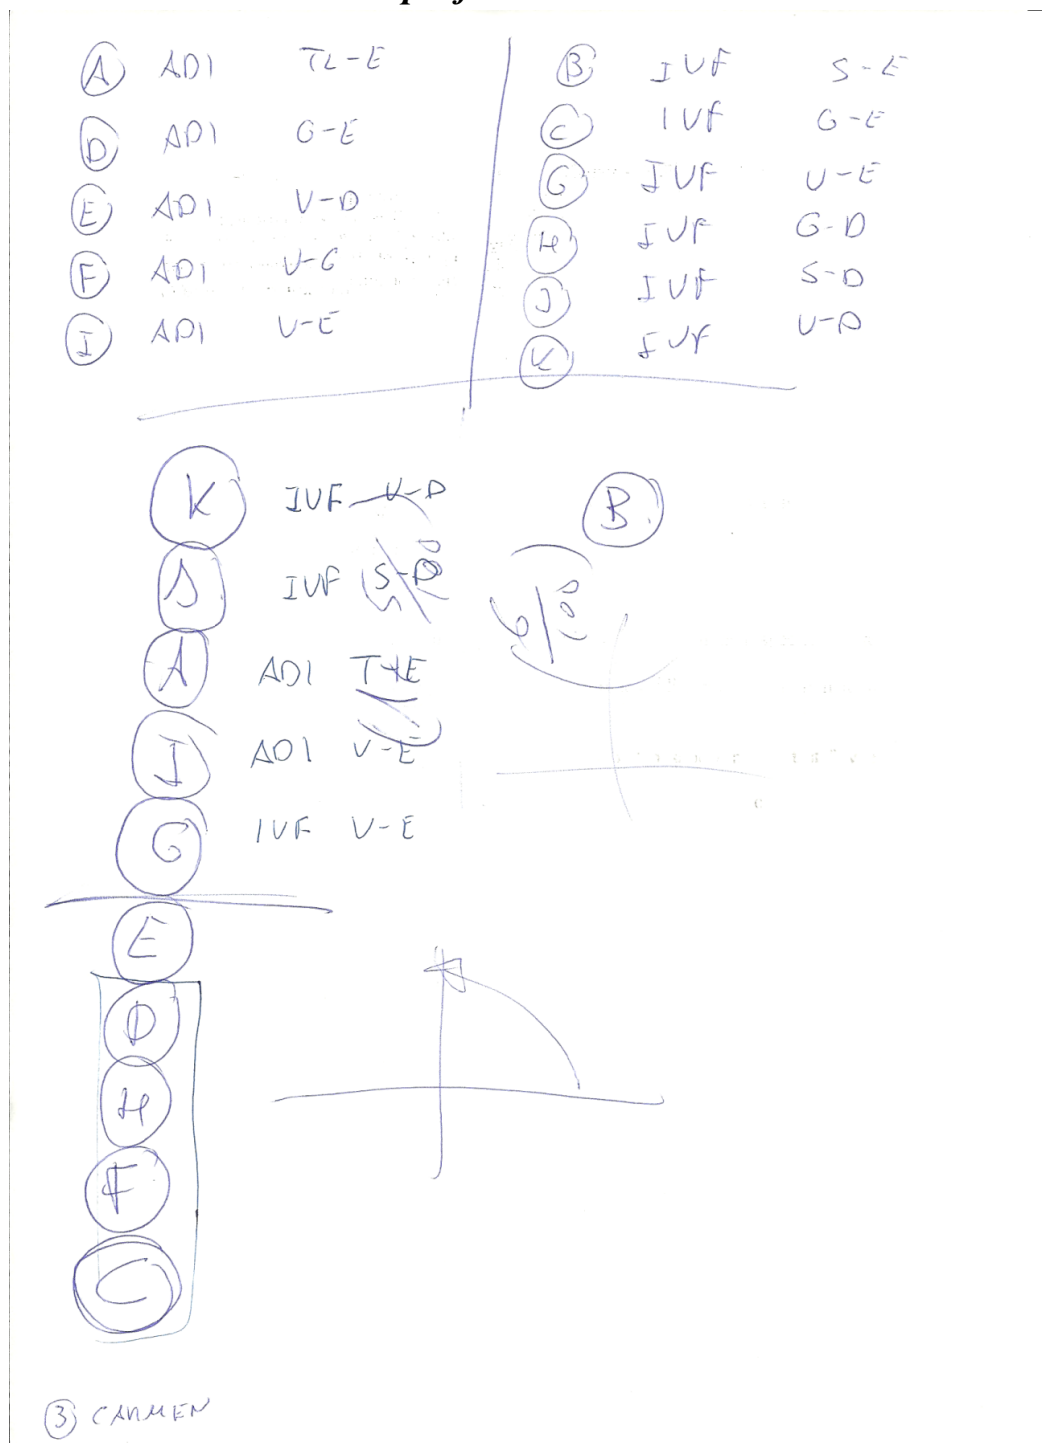 A ADI TL-E
D ADI G-E
E ADI V-D
F ADI V-G
I ADI V-E
B IVF S-E
C IVF G-E
G IVF V-E
H IVF G-D
J IVF S-D
K IVF V-D
K IVF V-D
B
IVF S-D
A ADI T+E
I ADI V-E
G IVF V-E
E
D
H
F
C
3 CARMEN